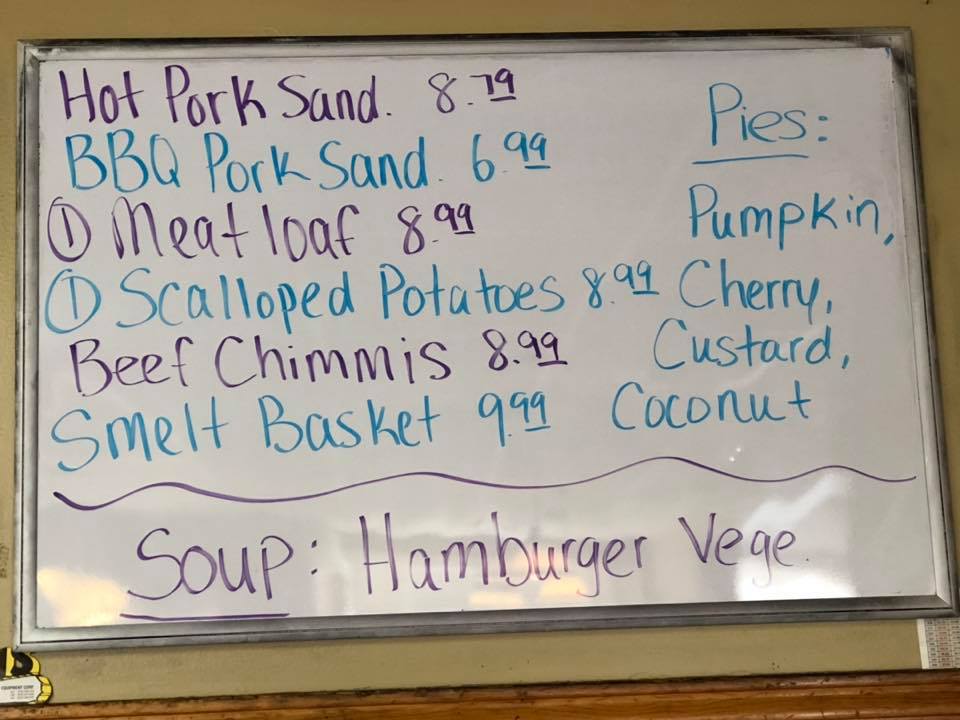 Hot Pork Sand. 8.79
BBQ Pork Sand. 6.99
① Meatloaf 8.99
① Scalloped Potatoes 8.99
Beef Chimmis 8.99
Smelt Basket 9.99
Pies:
Pumpkin,
Cherry,
Custard,
Coconut
Soup: Hamburger Vege.
EQUIPMENT CORP